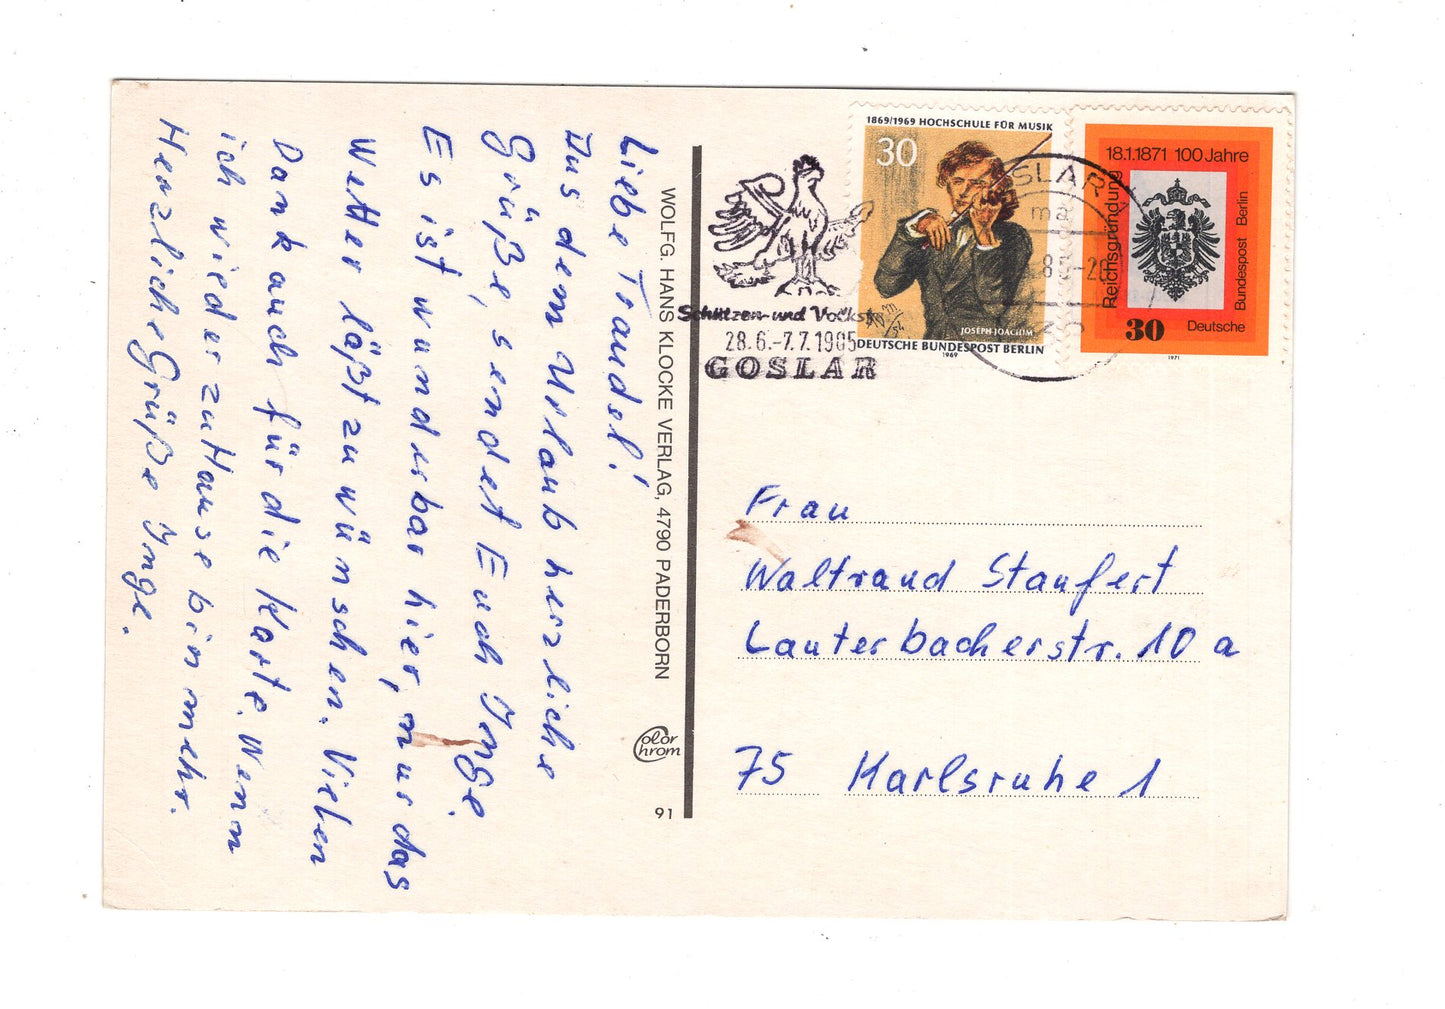 Liebe Traudel!
Aus dem Urlaub herzliche
Grüße, sendet Euch Inge.
Es ist wunderbar hier, nur das
Wetter läßt zu wünschen. Vielen
Dank auch für die Karte. Wenn
ich wieder zu Hause bin mehr.
Herzliche Grüße Inge.
WOLFG. HANS KLOCKE VERLAG, 4790 PADERBORN
Color
Chrom
91
Schützen- und Volksf
28.6.-7.7.1985
GOSLAR
1869/1969 HOCHSCHULE FÜR MUSIK
30
JOSEPH JOACHIM
DEUTSCHE BUNDESPOST BERLIN
1969
OSLAR 1
ma
85-20
18.1.1871 100 Jahre
Reichsgründung
Deutsche
Bundespost Berlin
30
1971
Frau
Waltraud Staufert
Lauterbacherstr. 10 a
75 Karlsruhe 1